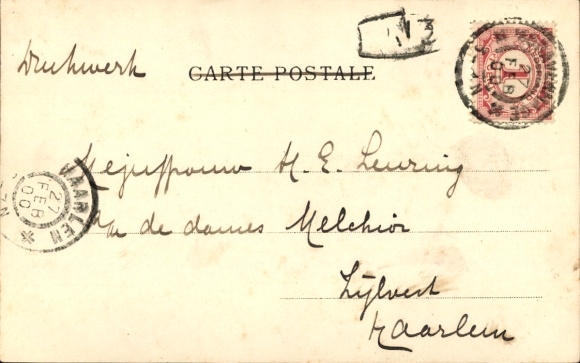 Drukwerk
CARTE POSTALE
1
27
FEB
00
Mejuffrouw H. E. Leuring
de dames Melchior
Zijlvest
Haarlem
HAARLEM
27
FEB
00